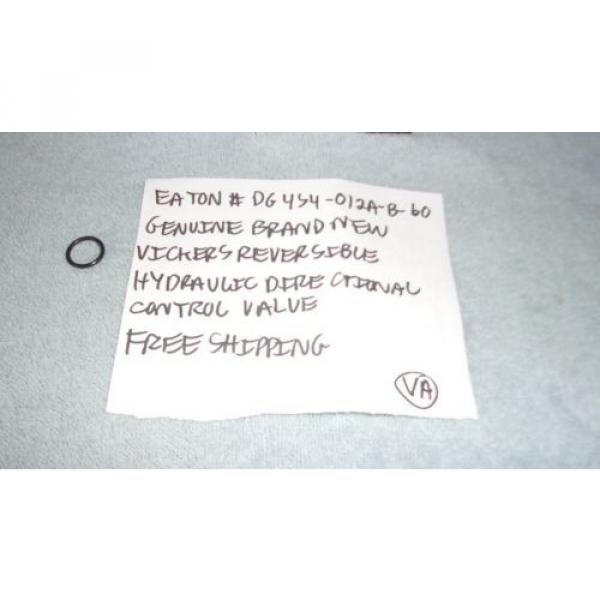 EATON # DG4S4-012A-B-60
GENUINE BRAND NEW
VICKERS REVERSIBLE
HYDRAULIC DIRECTIONAL
CONTROL VALUE
FREE SHIPPING
VA